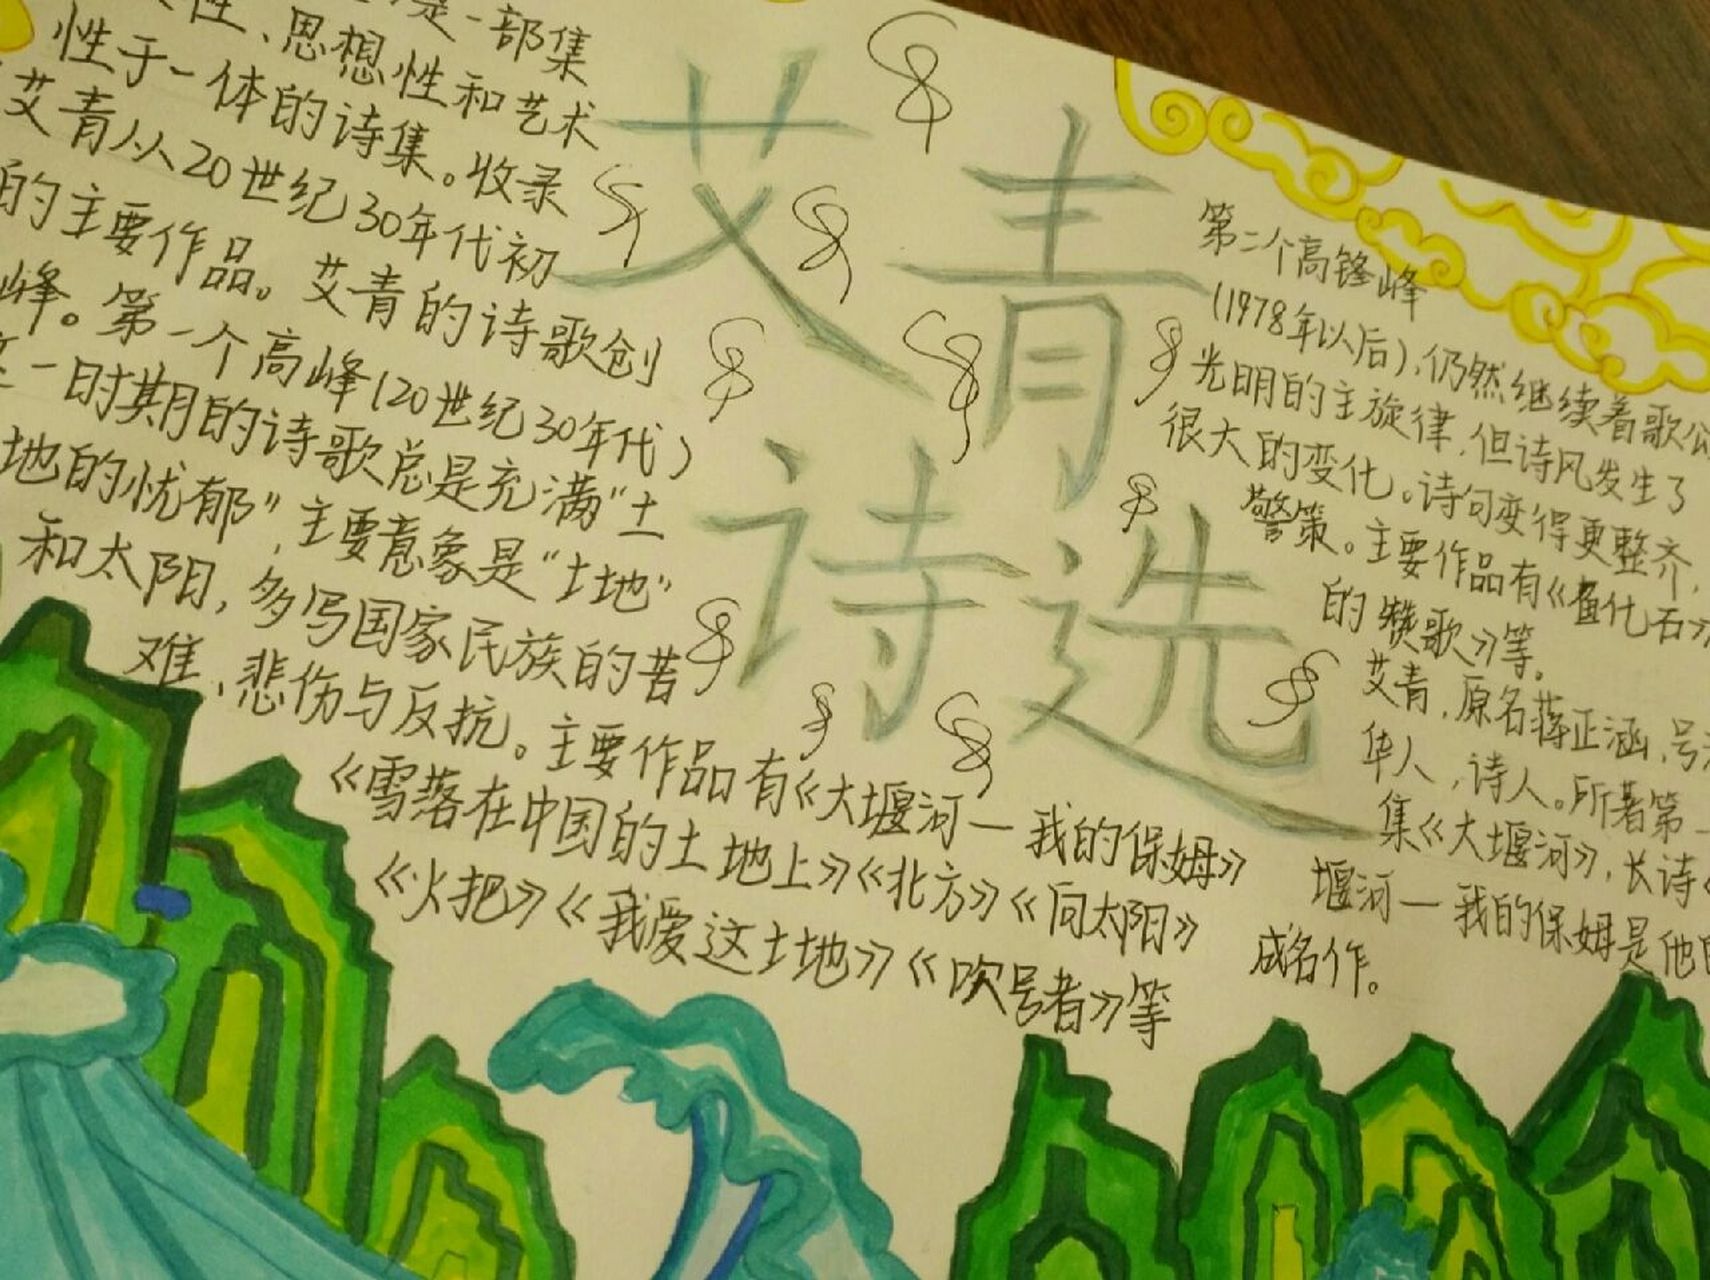 是一部集
性、思想性和艺术
性于一体的诗集。收录
艾青从20世纪30年代初
的主要作品。艾青的诗歌创
峰。第一个高峰(20世纪30年代)
一时期的诗歌总是充满“土
地的忧郁”,主要意象是“土地”
和太阳,多写国家民族的苦
难、悲伤与反抗。主要作品有《大堰河一我的保姆》
《雪落在中国的土地上》《北方》《向太阳》
《火把》《我爱这土地》《吹号者》等
艾青
诗选
第二个高锋峰
(1978年以后),仍然继续着歌
光明的主旋律,但诗风发生了
很大的变化。诗句变得更整齐,
警策。主要作品有《鱼化石》
的赞歌》等。
艾青,原名蒋正涵,号
华人,诗人。所著第一
集《大堰河》,长诗《
堰河一我的保姆是他
成名作。